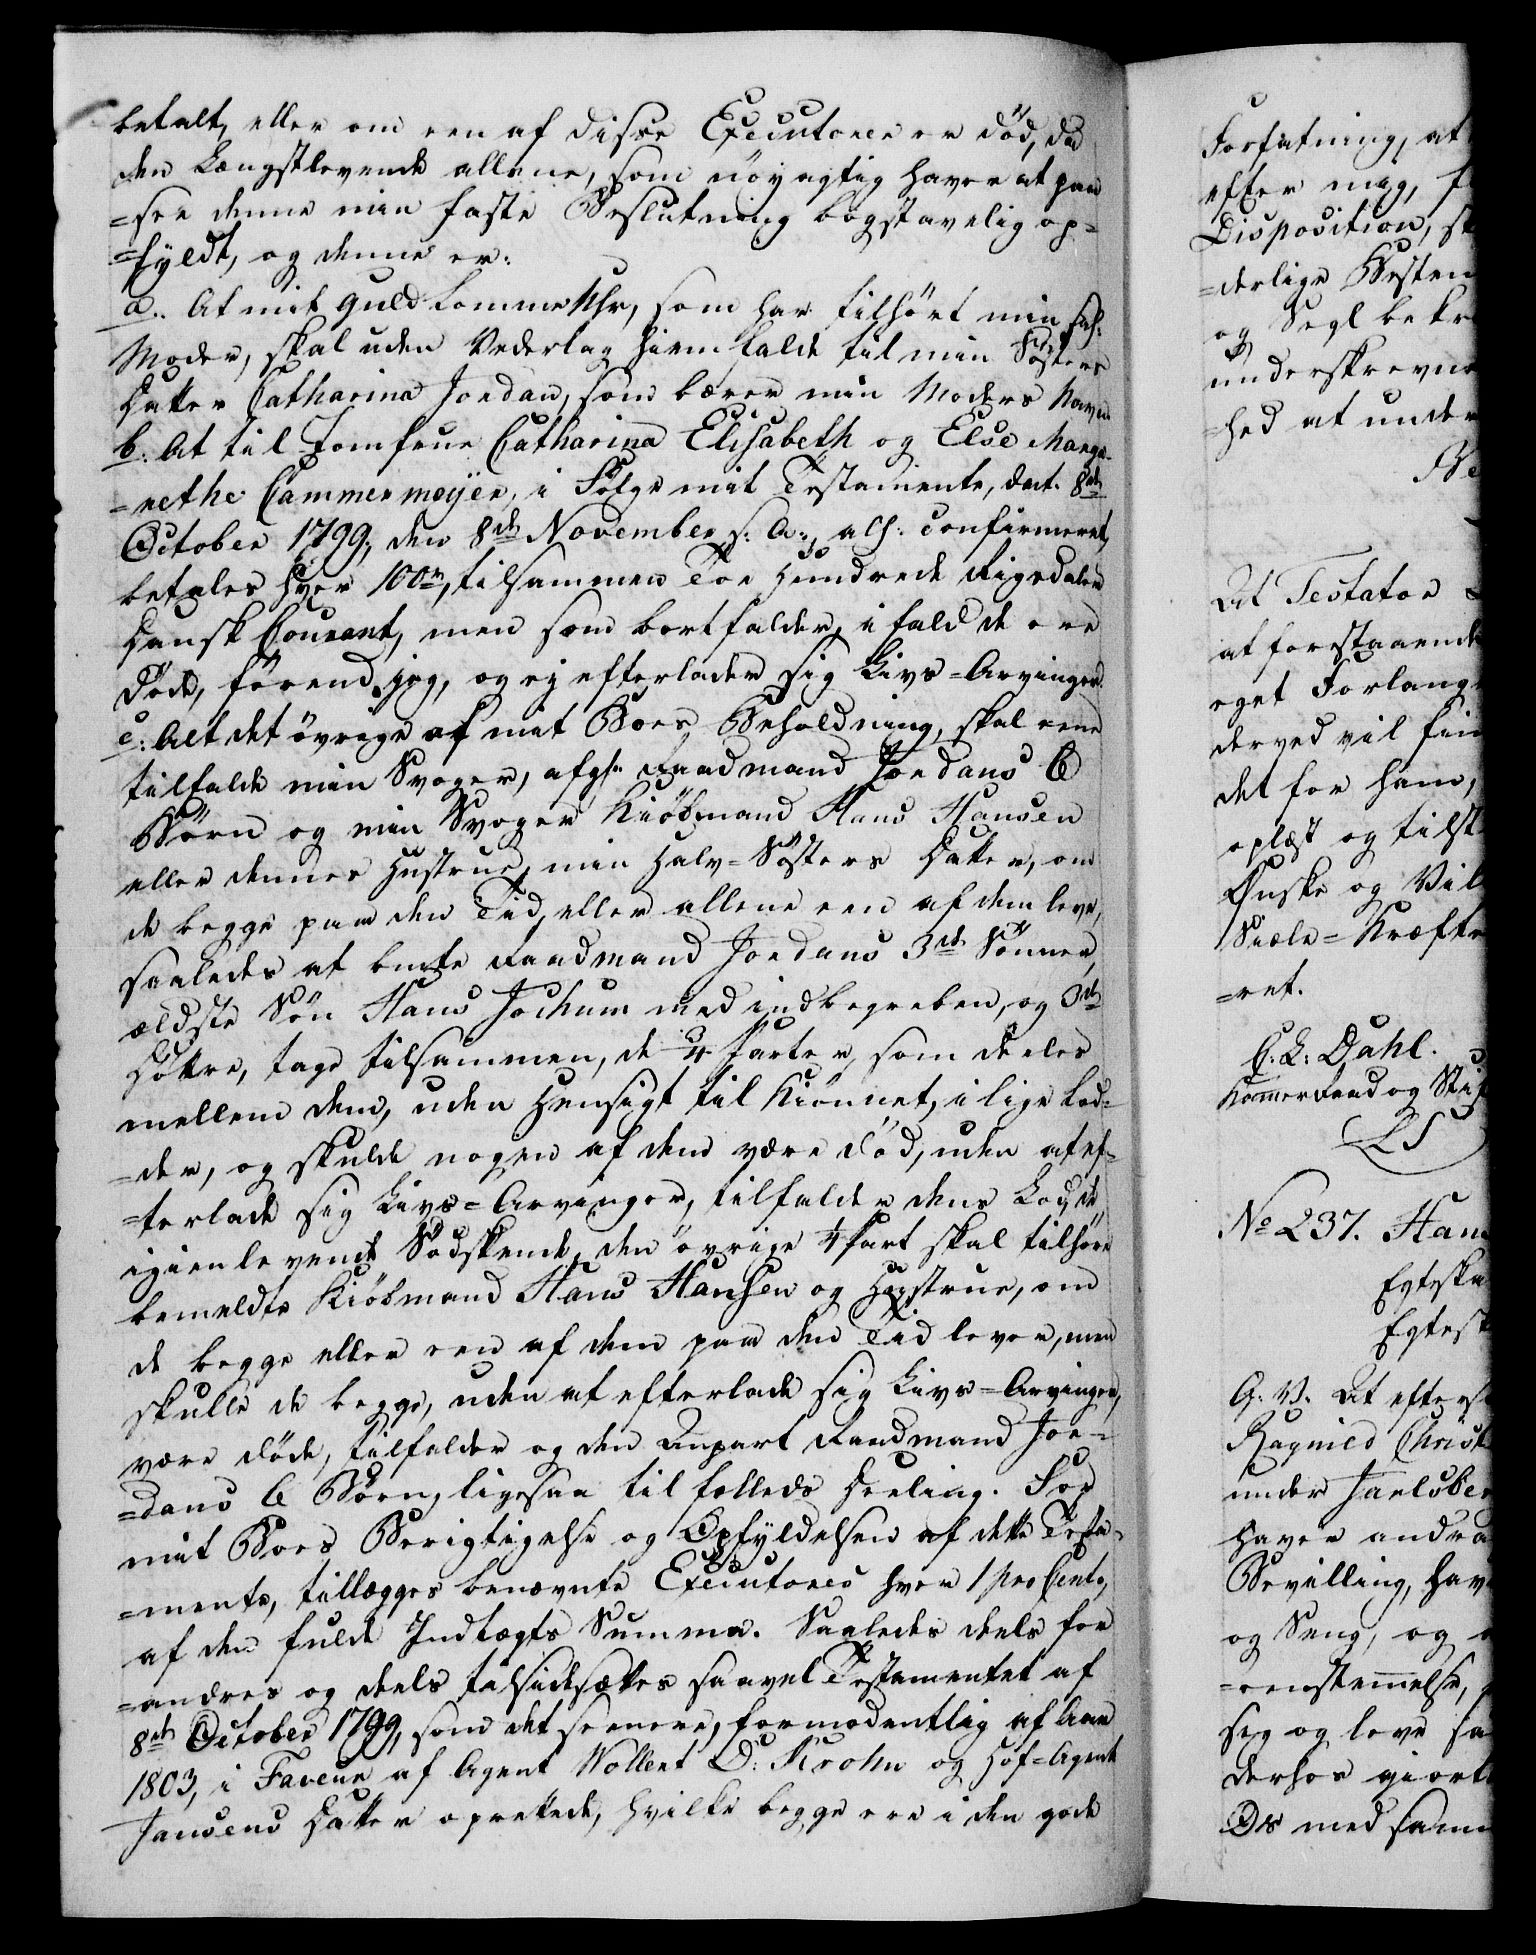 betalt, eller om een af disse Executorer er död, da
den Længstlevende allene, som nöyagtig haver at paa
=see denne min faste Beslutning bogstavelig op=
=fyldt, og denne er:
a. At mit Guld Lomme Uhr, som har tilhört min sal:
Moder, skal uden Vederlag hiemfalde til min Sösters
Datter Catharina Jordan, som bærer min Moders Navn
b. At til Jomfrue Catharina Elisabeth og Else Marga-
=rethe Cammermeyer, i Fölge mit Testamente, dat. 8de
October 1799, den 8de November s: A:, alf: confirmeret,
betales hver 100 rd, tilsammen Toe Hundrede Rigsdaler
Dansk Courant, men som bortfalder, ifald de ere
döde, förend jeg, og ej efterlader sig Livs=Arvinger.
c: Alt det övrige af mit Boes Beholdning, skal eene
tilfalde min Svoger, afg: Raadmand Jordans 6
Börn og min Svoger Kiöbmand Hans Hansen
eller dennes Hustrue, min Halv=Sösters Datter, om
de begge paa den Tid, eller allene een af dem leve,
saaledes at bemte Raadmand Jordans 3de Sönner,
ældste Sön Hans Jochum med indbegreben, og 3de
Döttre, tage tilsammen, de 3/4 Parter, som deeles
mellem dem, uden Hensigt til Kiönnet, i lige Lod=
=der, og skulde nogen af dem være död, uden at ef=
=terlade sig Livs=Arvinger, tilfalder dens Lod, de
igienlevende Södskende, den övrige 1/4 Part skal tilhöre
bemeldte Kiöbmand Hans Hansen og Hustrue, om
de begge eller een af dem paa den Tid lever, men
skulle de begge, uden at efterlade sig Livs=Arvinger,
være döde, tilfalder og den Anpart Raadmand Jor=
=dans 6 Börn, ligesaa til fælleds Deeling. For
mit Boes Berigtigelse og Opfyldelsen af dette Testa-
=mente, tillægges benævnte Executores hver 1 pro Cento,
af den fulde Indtægts Summa. Saaledes deels for
=andres og deels tilsidesættes saavel Testamentet af
8de October 1799, som det seenere, formodentlig af Aar
1803, i Faveur af Agent Wollert D: Krohn og Hof=Agent
Jansens Datter oprettede, hvilke begge ere i den gode
Forfatning, at
efter mig, f
Disposition, sk
=derlige Besten
og Segl bekr
underskrevne
=hed at under
Be
At Testator
at forstaaende
eget Forlang
derved vil fin
det for ham,
oplæst og tilst
Ønske og Vil
Siæle=Kræfte
=ret.
C: L: Dahl.
Kammerraad og Stif
LS
No 237. Hans
Egteska
Egtesk
G. V. At efters
Ragnild Christ
under Jarlsber
haver andra
Bevilling, hav
og Seng, og
=eenstemmelse,
sig og leve sa
derhos giort
Os med samm